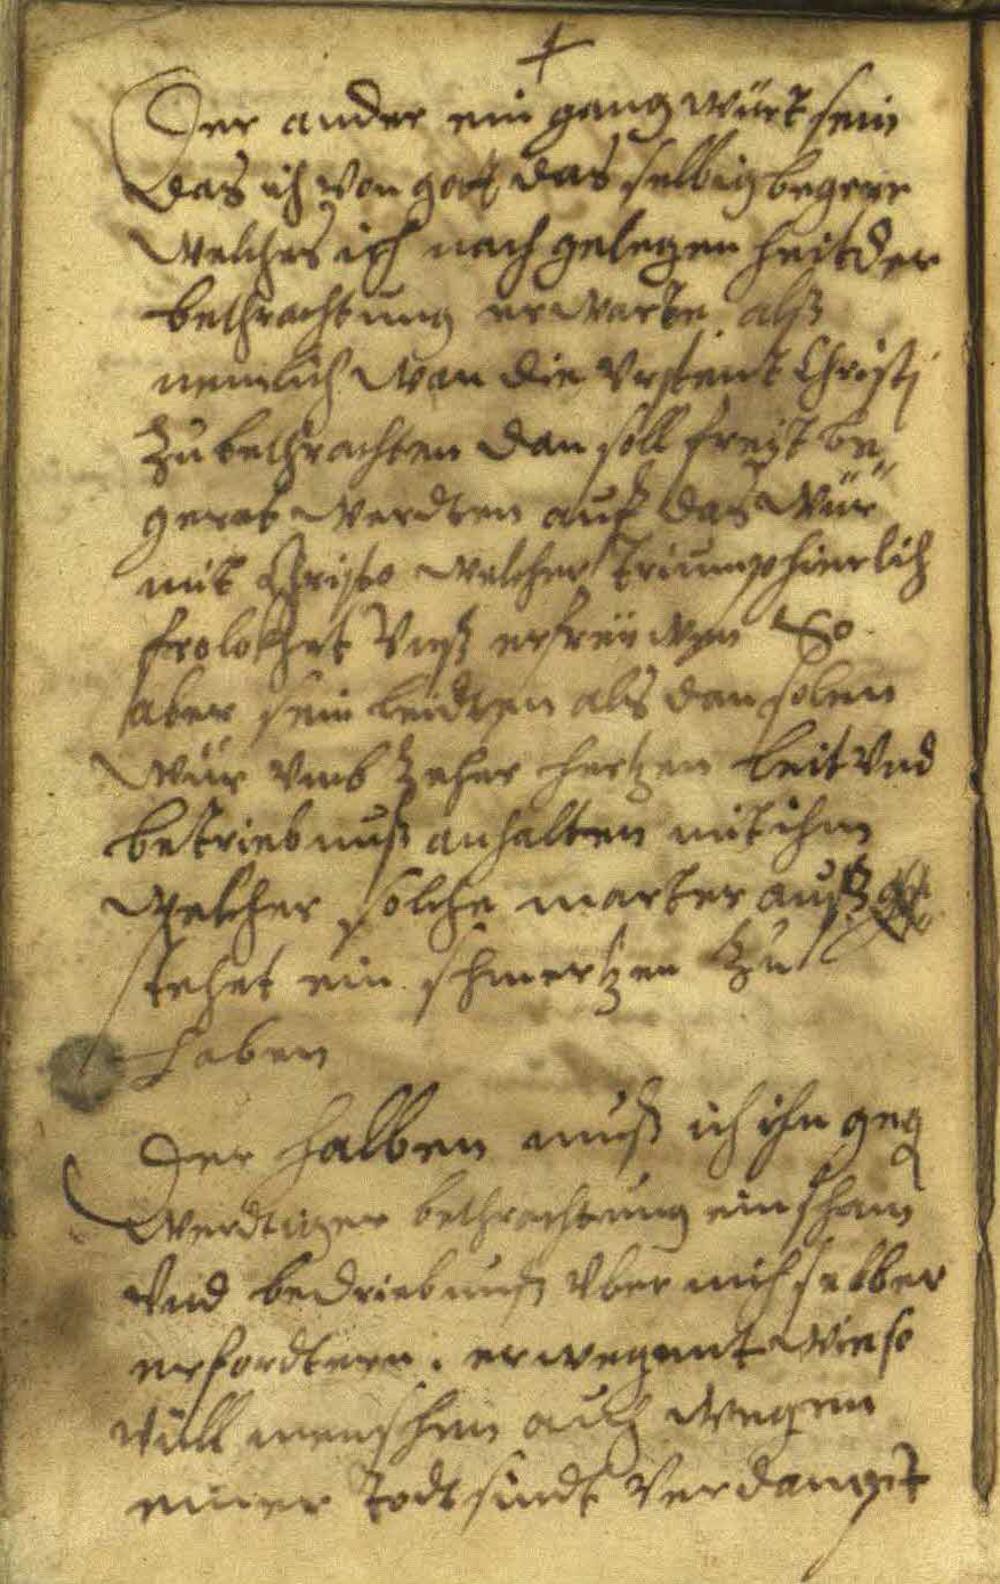 4
Der ander ein gang würt sein
das ich von gott das selbig begere
welches ich nach gelegen heit der
bethrachtung erwarte alß
nemlich wan die Urstent Christi
zu bethrachten dan soll freyt be,,
gerat werdten auf das wür
mit Christo welcher triumphierlich
frolokhet Unß erfreüwen So
aber sein leidten als dan solen
wür umb zeher hertzen leit und
betriebnuß anhalten mit ihm
welcher solche marter auß
stehet ein schmertzen zu
haben
Der halben muß ich ihn geg
werdtiger bethrachtung ein scham
und bedriebnuß uber mich selber
erfordtern. erwegent wie so
vüll menschen auch wegen
einer todt sindt verdampt